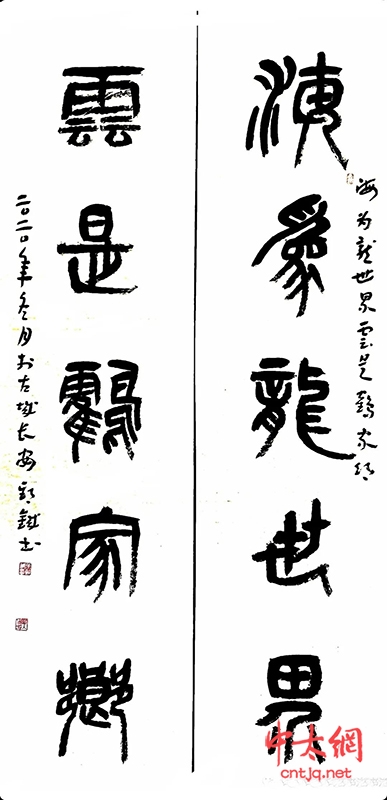 海為龍世界
海为龍世界雲是鶴家鄉
雲是鶴家鄉
二〇二〇年冬月於古城長安
中太網
cntjq.net